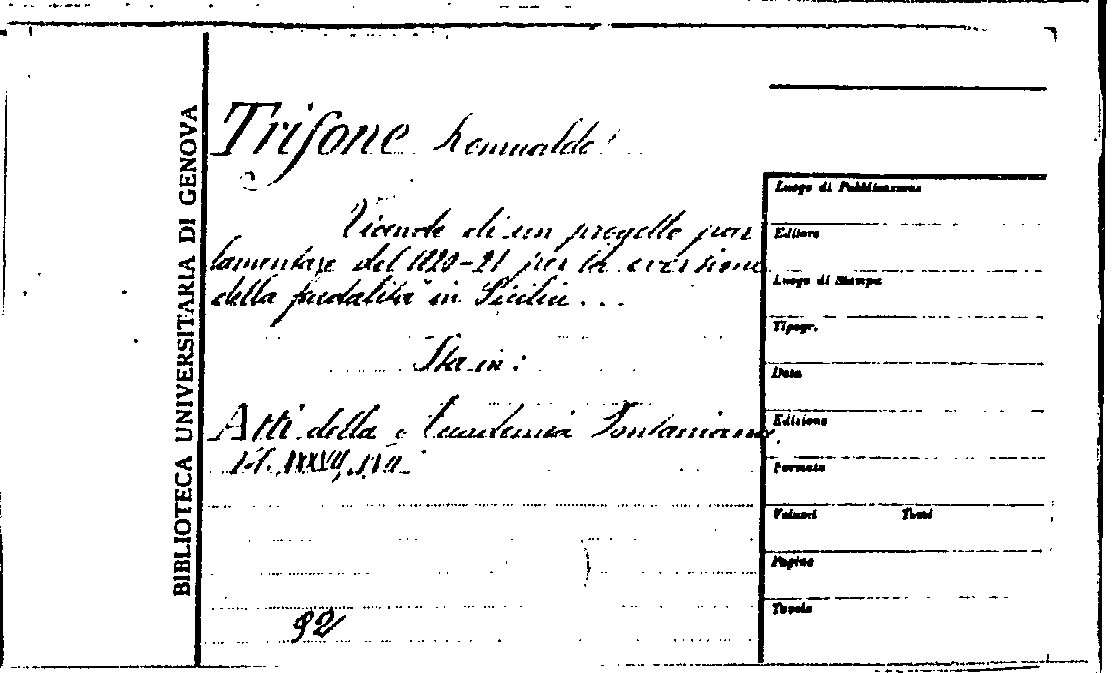 BIBLIOTECA UNIVERSITARIA DI GENOVA
Trifone Romualdo
Vicende di un progetto par
lamentare del 1820-21 per la eversione
della feodalità in Sicilia...
Sta in:
Atti della Accademia Pontaniana.
92
Luogo di Pubblicazione
Editore
Luogo di Stampa
Tipogr.
Data
Edizione
Formato
Volumi Tomi
Pagine
Tavole